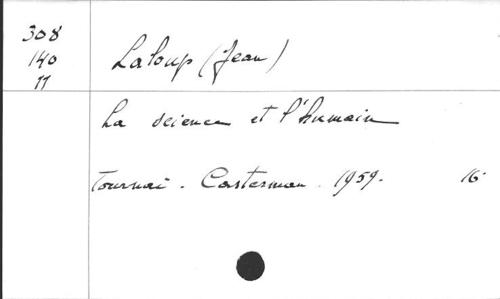 308
140
11
Laloup (Jean)
La science et l'humain
Tournai - Casterman - 1959. 16